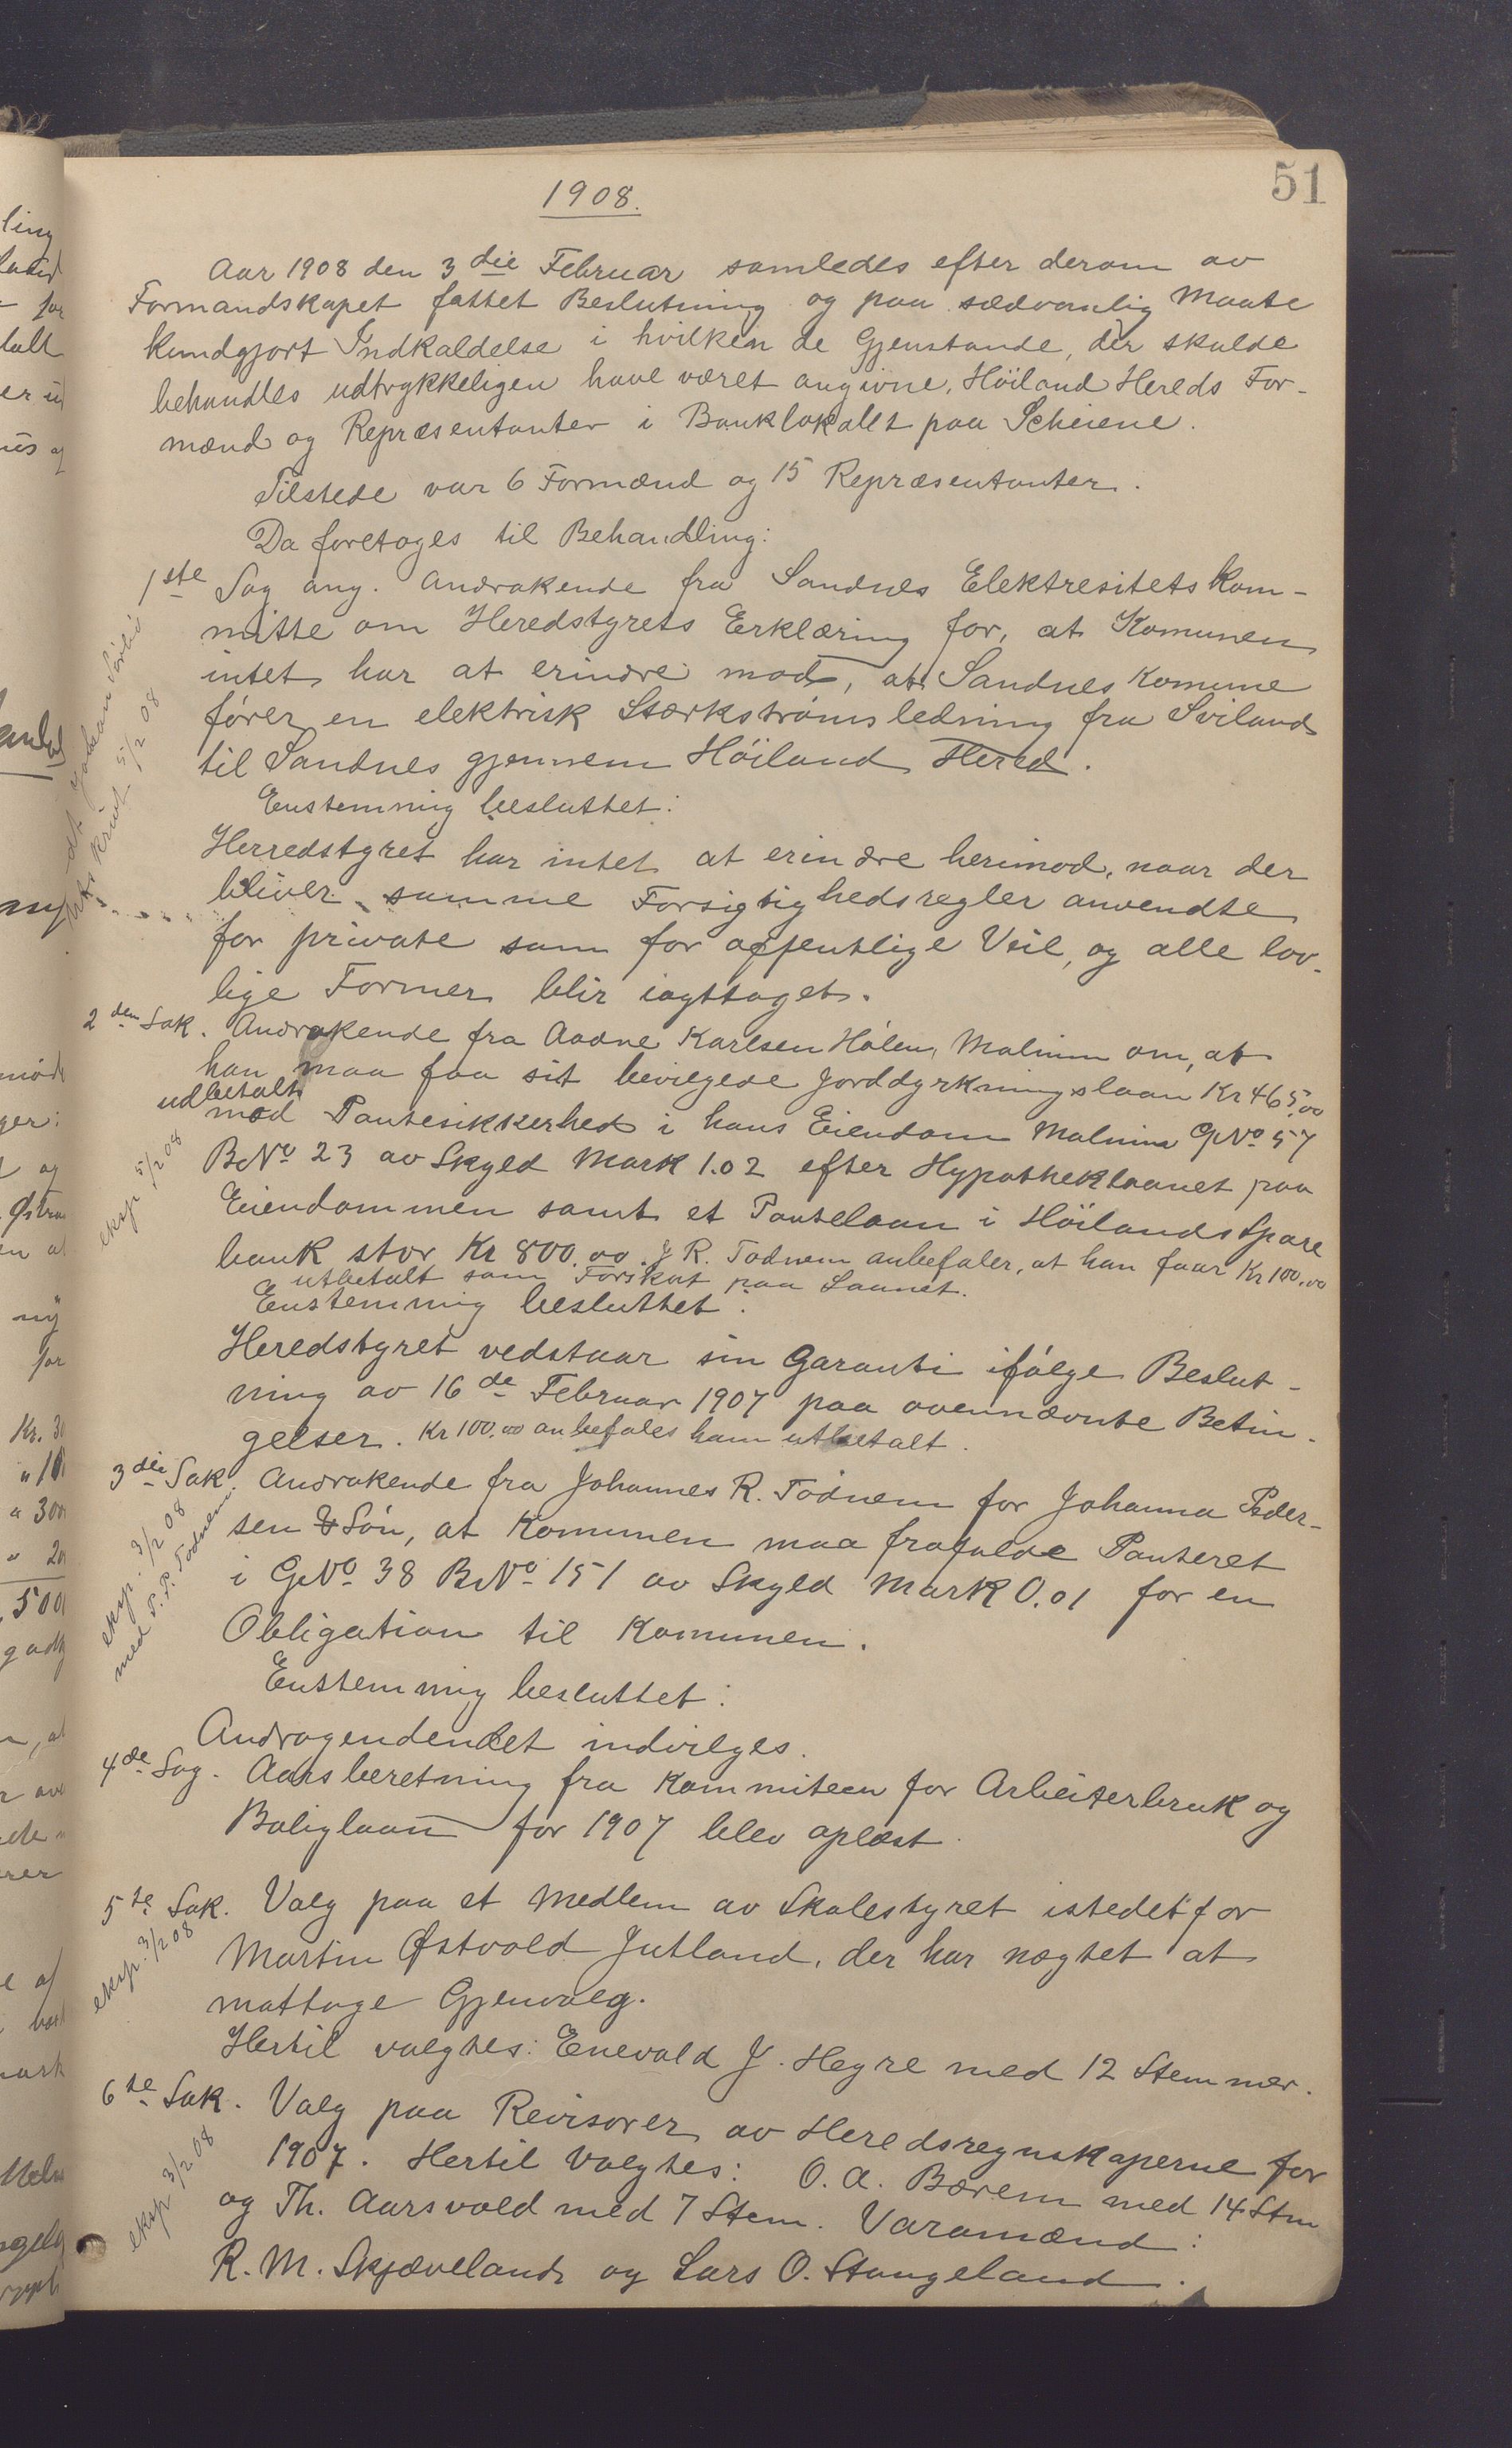 51
1908.
Aar 1908 den 3die Februar samledes efter derom av
Formandskapet fattet Beslutning og paa sædvanlig Maate
kundgjort Indkaldelse i hvilken de Gjenstande, der skulde
behandles udtrykkeligen have været angivne, Höiland Hereds For-
mænd og Repræsentanter i Banklokalet paa Scheiene.
Tilstede var 6 Formænd og 15 Repræsentanter.
Da foretoges til Behandling:
1ste Sag ang. Andrakende fra Sandnes Elektresitetskom-
mitte om Heredstyrets Erklæring for, at Komunen
intet har at erindre mod, at Sandnes Komune
fører en elektrisk Stærkstrømsledning fra Sviland
til Sandnes gjennem Höiland Hered.
5/2 08
Enstemmig besluttet:
Herredstyret har intet at erindre herimod, naar der
bliver samme Forsigtighedsregler anvendte
for private som for offentlige Veie, og alle lov-
lige Former blir iagttaget.
2den Sak. Andrakende fra Aadne Karlsen Hølen, Malmim om, at
han maa faa sit bevilgede Jorddyrkningslaan Kr 465,00
udbetalt
mod Pantesikkerhed i hans Eiendom Malmim GNo 57
BNo 23 av Skyld Mark 1.02 efter Hypotheklaanet paa
eksp 5/2 08
Eiendommen samt et Pantelaan i Höilands Spare
bank stor Kr 800.00. J R. Tødnem anbefaler, at han faar Kr 100.00
utbetalt som Forskut paa Laanet.
Enstemmig besluttet:
Heredstyret vedstaar sin Garanti ifølge Beslut-
ning av 16de Februar 1907 paa ovennævnte Betin-
gelser. Kr 100.00 anbefales ham utbetalt.
3die Sak. Andrakende fra Johannes R. Tødnem for Johanna Peder-
sen & Søn, at Komunen maa frafalde Panteret
i GNo 38 BNo 151 av Skyld Mark 0.01 for en
Obligation til Komunen.
eksp. 3/2 08
med P.P. Todnem
Enstemmig besluttet:
Andragendendet indvilges.
4de Sag. Aarsberetning fra Kommiteen for Arbeiterbruk og
Boliglaan for 1907 blev oplæst.
5te Sak. Valg paa et Medlem av Skolestyret istedetfor
Martin Østvold Jutland, der har nægtet at
mottage Gjenvalg.
eksp. 3/2 08
Hertil valgtes: Enevald J. Hegre med 12 Stemmer.
6te Sak. Valg paa Revisorer av Heredsregnskaperne for
1907. Hertil Valgtes: O. A. Bærem med 14 Stm
og Th. Aarsvold med 7 Stem. Varamænd:
eksp 3/2 08
R. M. Skjæveland og Lars O. Stangeland.